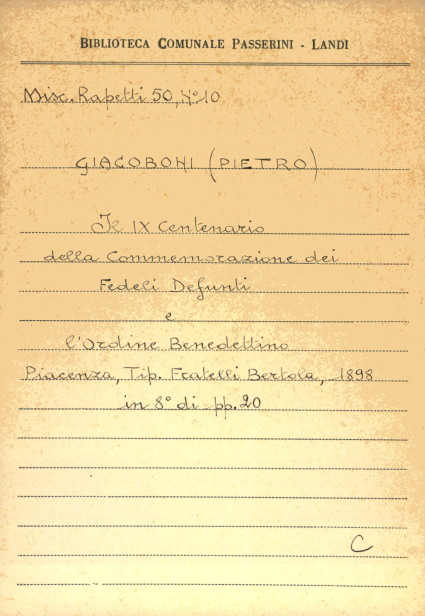 BIBLIOTECA COMUNALE PASSERINI - LANDI
Misc. Rapetti 50, N° 10
GIACOBONI (PIETRO)
Il IX Centenario
della Commemorazione dei
Fedeli Defunti
e
l'Ordine Benedettino
Piacenza, Tip. Fratelli Bertola, 1898
in 8° di pp. 20
C